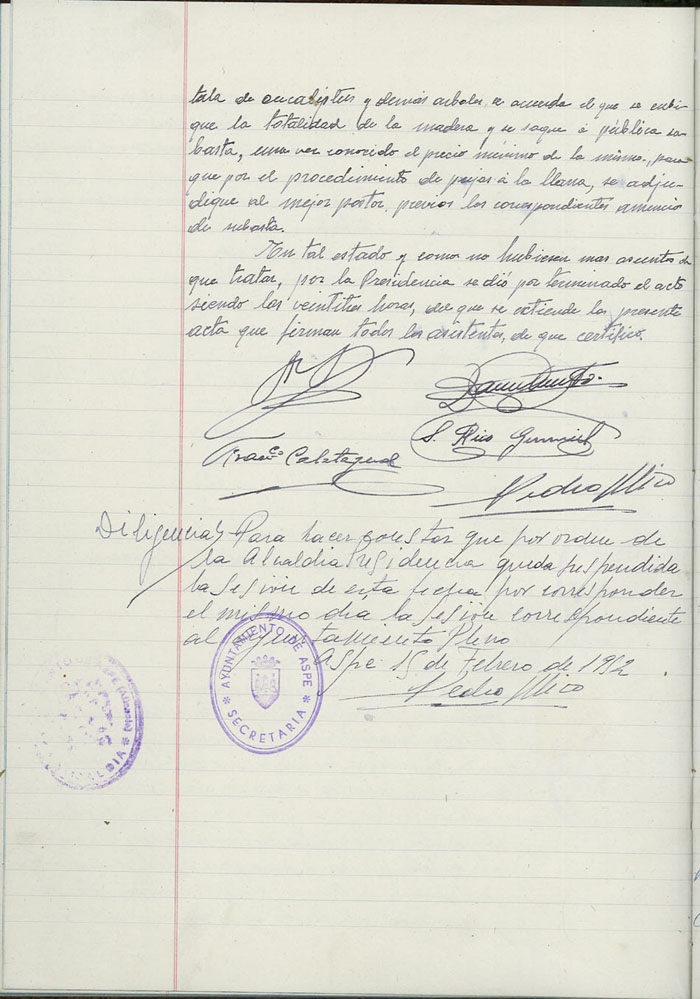 tala de eucaliptus y demás arboles se acuerda el que se cubi-
que la totalidad de la madera y se saque á pública su-
basta, una vez conocido el precio minimo de la misma, para
que por el procedimiento de pujas á la llana, se adju-
dique al mejor postor, previos los correspondientes anuncio
de subasta.
En tal estado y como no hubiesen mas asuntos de
que tratar, por la Presidencia se dió por terminado el acto
siendo las veintitres horas, de que se extiende la presente
acta que firman todos los asistentes, de que certifico.
S. Rico
Franco Calatayud
Pedro Mico
Diligencia / Para hacer constar que por orden de
la Alcaldia Presidencia queda suspendida
la sesión de esta fecha por corresponder
el mismo dia la sesión correspondiente
al Ayuntamiento Pleno
Aspe 15 de Febrero de 1972
Pedro Mico
* AYUNTAMIENTO DE ASPE *
SECRETARIA
ASPE (Alicante) *
ALCALDIA